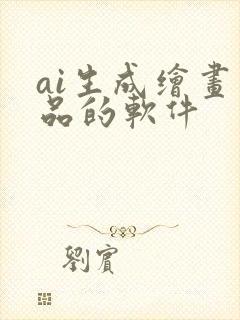 ai生成繪畫
品的軟件
劉賓